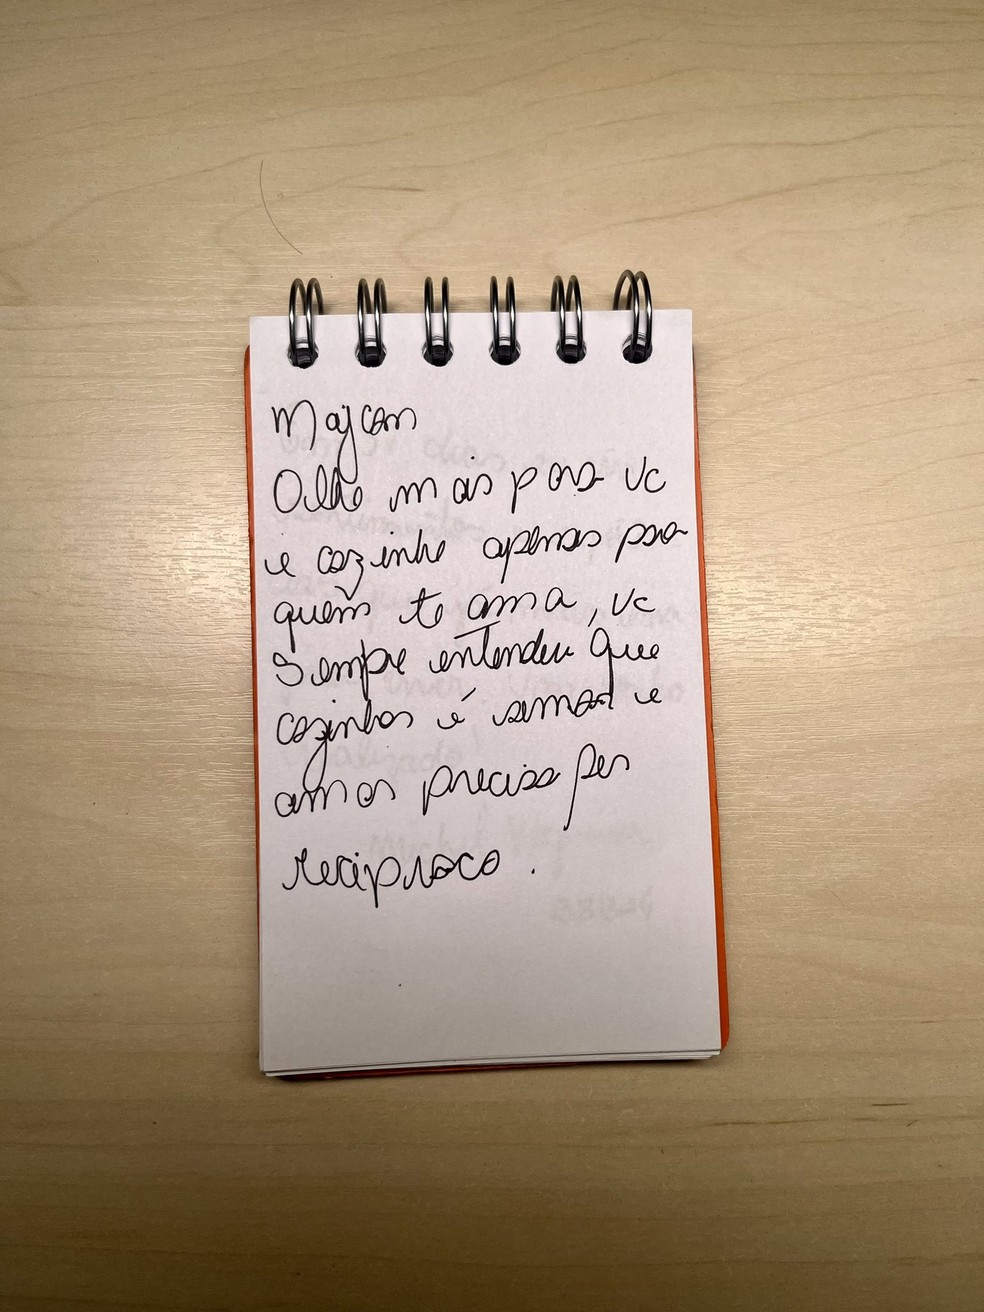 Majcom
Olhe mais para vc
e cozinhe apenas para
quem te ama, vc
sempre entendeu que
cozinhar é amar e
amar precisa ser
recíproco.